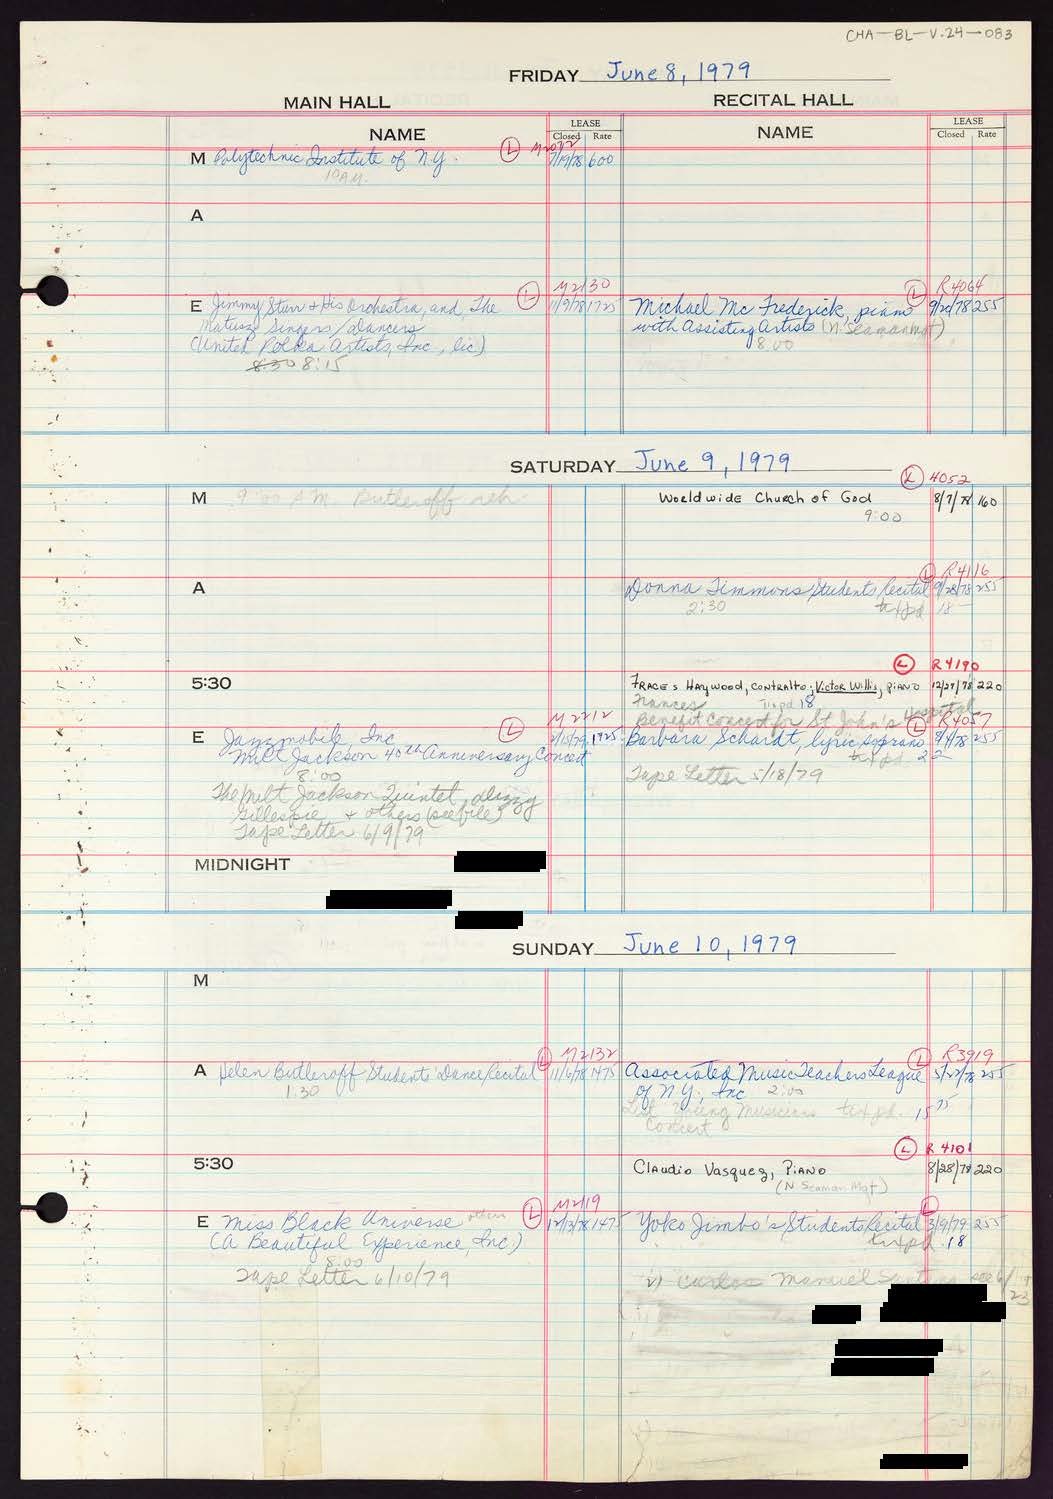 CHA-BL-V.24-083
FRIDAY June 8, 1979
MAIN HALL
RECITAL HALL
NAME
LEASE
Closed Rate
NAME
LEASE
Closed Rate
M Polytechnic Institute of N.Y. (L) M2072 7/19/78 600
10 A.M.
A
E Jimmy Sturr & His Orchestra, and, The (L) M2130 11/9/78 1725
Matusz Singers/dancers
(United Polka Artists, Inc., lic)
8:30 8:15
Michael Mc Frederick, piano (L) R4064 9/20/78 255
with Assisting Artists (N. Seaman Mgt)
8:00
SATURDAY June 9, 1979
M 9:00 A.M. Butleroff reh.
Worldwide Church of God (L) 4052 8/7/78 160
9:00
A
Donna Timmons Students Recital (L) R4116 9/28/78 255
2:30 txpd 18-
5:30
Fraces Haywood, contralto; Victor Willis, piano (L) R4190 12/27/78 220
Frances txpd 18
Benefit Concert for St John's Hospital
E Jazzmobile Inc (L) M2212 2/15/79 1725-
Milt Jackson 40th Anniversary Concert
8:00
The Milt Jackson Quintet, Dizzy
Gillespie + others (see file)
Tape Letter 6/9/79
Barbara Schardt, lyric soprano (L) R4057 8/4/78 255
txpd 22
Tape Letter 5/18/79
MIDNIGHT
SUNDAY June 10, 1979
M
A Helen Butleroff Students' Dance Recital (L) M2132 11/6/78 1475
1:30
Associated Music Teachers League (L) R3919 5/22/78 255
of N.Y., Inc 2:00
Young Musicians txpd. 15 75
Concert
5:30
Claudio Vasquez, Piano (L) R4101 8/28/78 220
(N Seaman Mgt)
E Miss Black Universe (L) M2119 12/13/78 1475
(A Beautiful Experience, Inc)
8:00
Tape Letter 6/10/79
Yoko Jimbo's Students Recital (L) 3/9/79 255
txpd. 18
2) Carlos Manuel see 6/
23